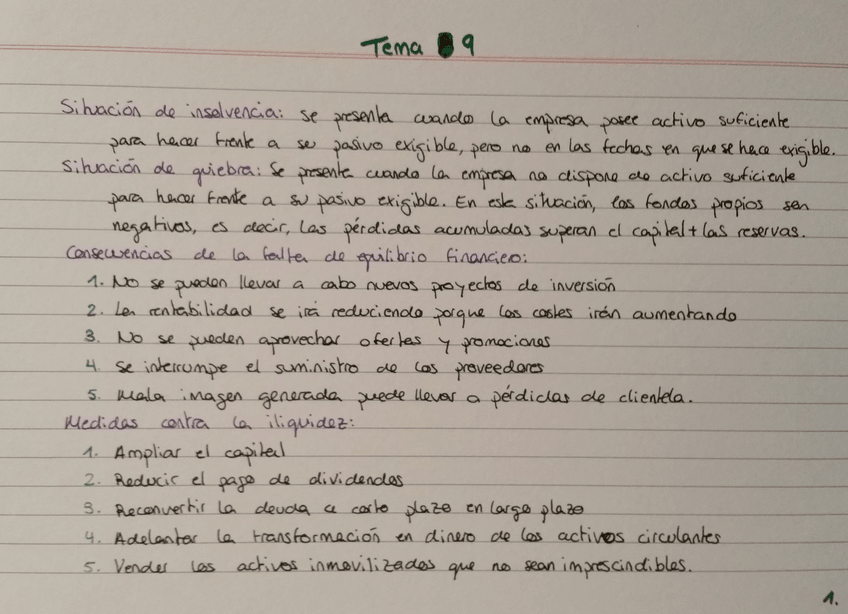 Tema 9
Situación de insolvencia: se presenta cuando la empresa posee activo suficiente
para hacer frente a su pasivo exigible, pero no en las fechas en que se hace exigible.
Situación de quiebra: Se presenta cuando la empresa no dispone de activo suficiente
para hacer frente a su pasivo exigible. En esta situación, los fondos propios son
negativos, es decir, las pérdidas acumuladas superan el capital + las reservas.
Consecuencias de la falta de equilibrio financiero:
1. No se pueden llevar a cabo nuevos proyectos de inversión
2. La rentabilidad se irá reduciendo porque los costes irán aumentando
3. No se pueden aprovechar ofertas y promociones
4. Se interrumpe el suministro de los proveedores
5. Mala imagen generada puede llevar a pérdidas de clientela.
Medidas contra la iliquidez:
1. Ampliar el capital
2. Reducir el pago de dividendos
3. Reconvertir la deuda a corto plazo en largo plazo
4. Adelantar la transformación en dinero de los activos circulantes
5. Vender los activos inmovilizados que no sean imprescindibles.
1.